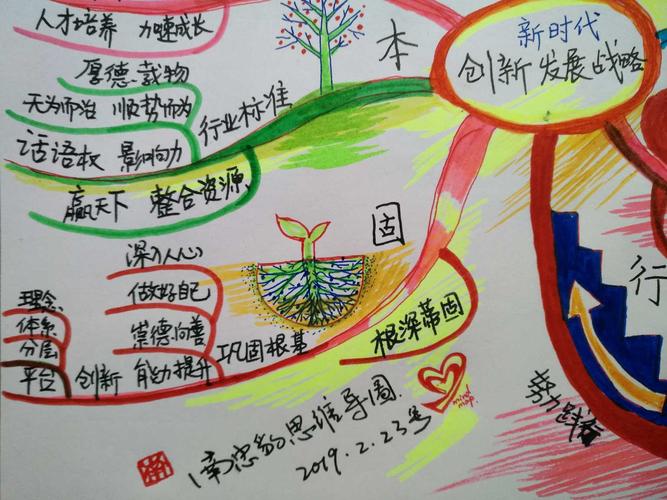 新时代
创新发展战略
本
人才培养 加速成长
厚德载物
无为而治 顺势而为
话语权 影响力
行业标准
赢天下 整合资源
固
深入人心
做好自己
崇德向善
能力提升
创新
理念
体系
分层
平台
巩固根基
根深蒂固
行
努力践行
mind
map.
思维导图
2019.2.23号